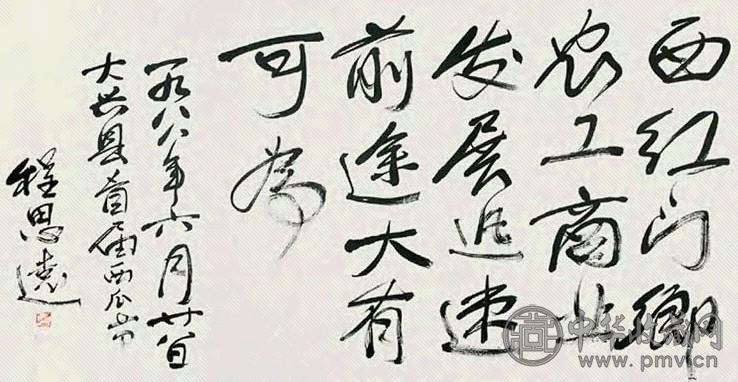 西红门鄉
农工商业
发展迅速
前途大有
可為
一九八八年六月廿八日
大兴县首届西瓜节
程思远
中华收藏网
www.pmv.cn